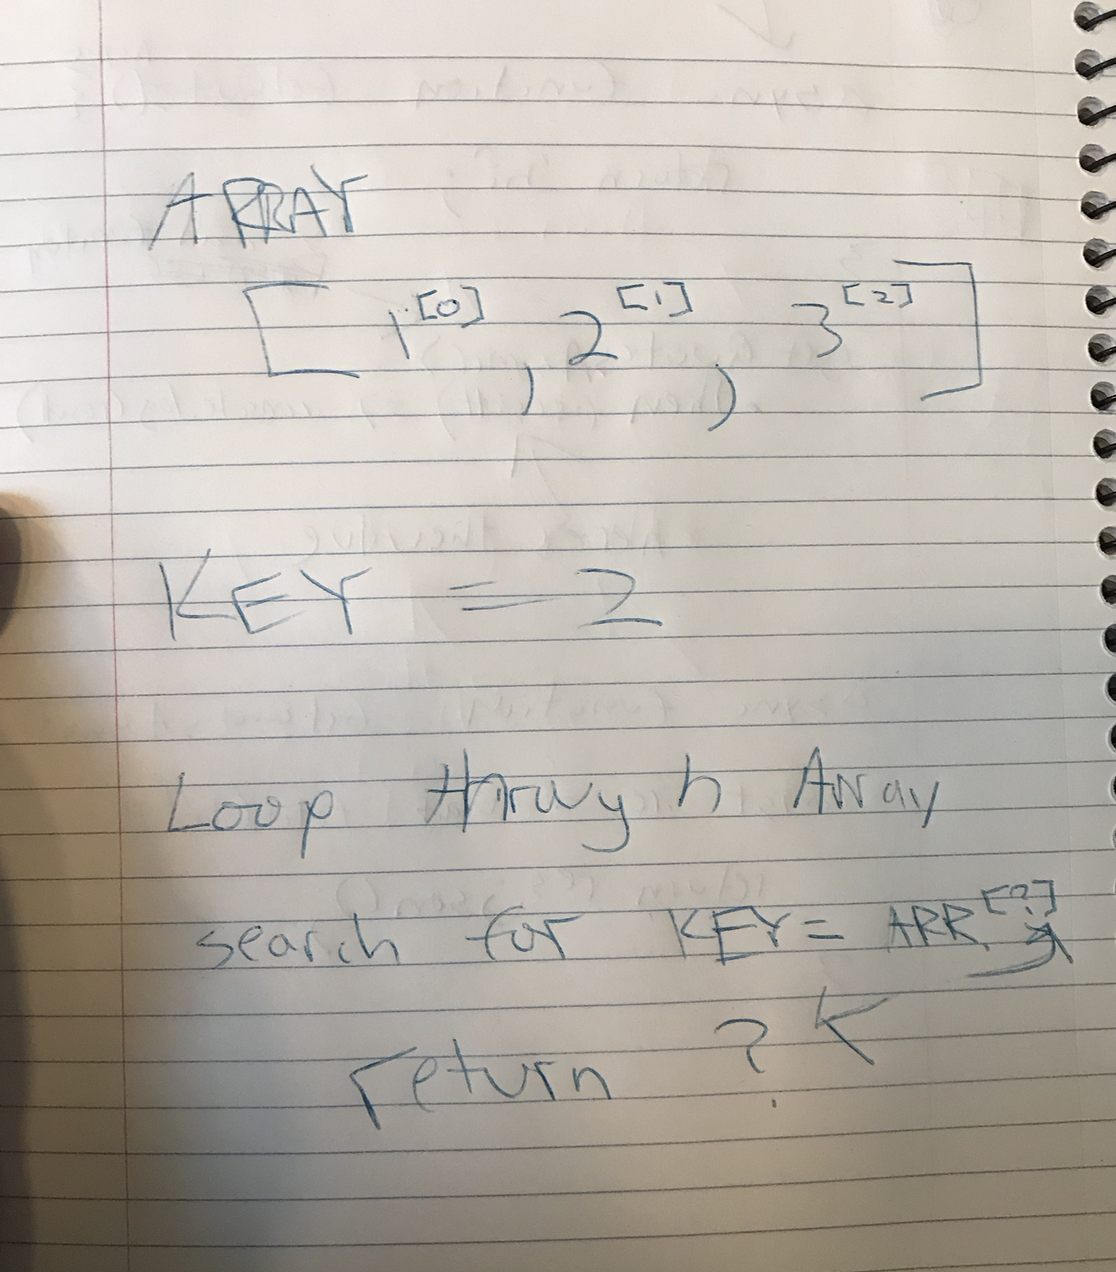 ARRAY
[ 1[0] , 2[1] , 3[2] ]
KEY = 2
Loop through Array
search for KEY = ARR[?]
return ?